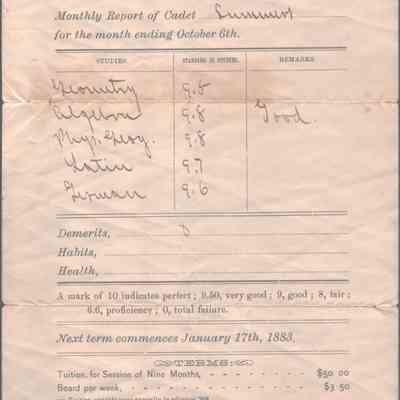 Monthly Report of Cadet Summers
for the month ending October 6th.
STUDIES. STANDING IN STUDIES. REMARKS.
Geometry 9.8
Algebra 9.8 Good.
Phys. Geog. 9.8
Latin 9.7
German 9.6
Demerits, 0
Habits,
Health,
A mark of 10 indicates perfect; 9.50, very good; 9, good; 8, fair;
6.6, proficiency; 0, total failure.
Next term commences January 17th, 1883.
TERMS:
Tuition, for Session of Nine Months, - - - - - - - - $50 00
Board per week, - - - - - - - - $3 50